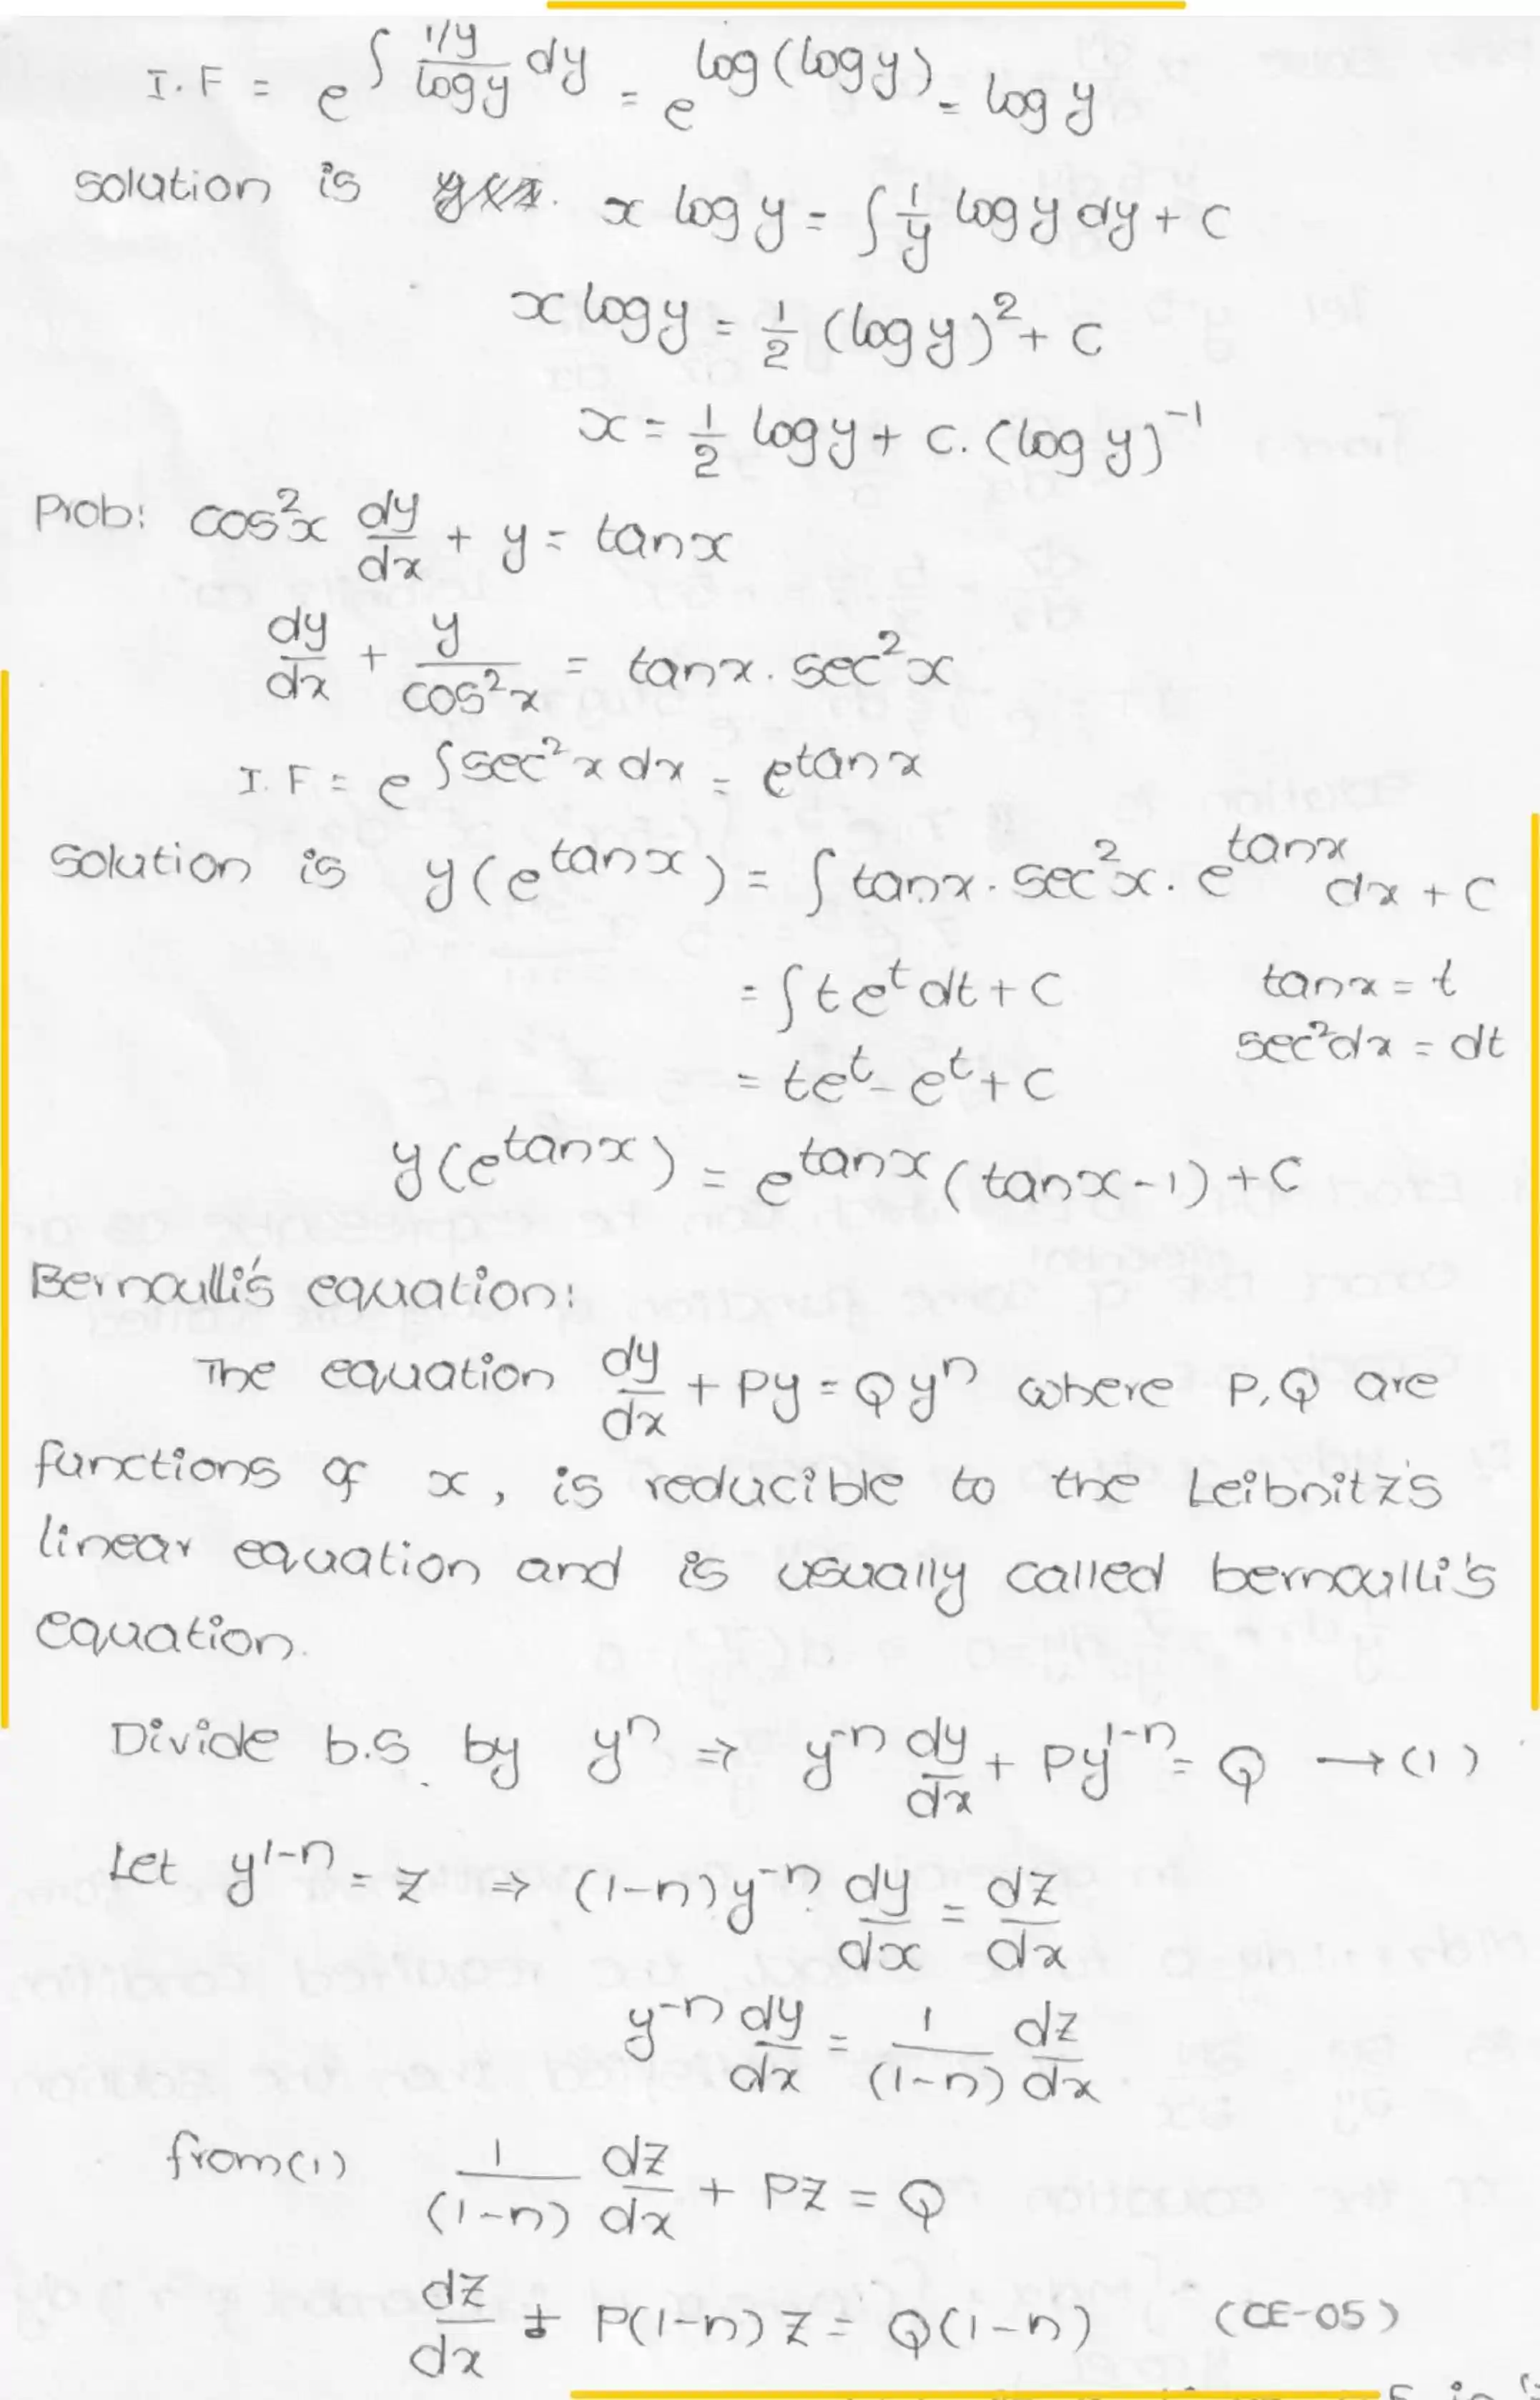 I.F = e^∫ (1/y)/(log y) dy = e^log(log y) = log y
solution is x log y = ∫ 1/y log y dy + c
x log y = 1/2 (log y)² + c
x = 1/2 log y + c. (log y)⁻¹
Prob: cos²x dy/dx + y = tanx
dy/dx + y/cos²x = tanx. sec²x
I.F = e^∫sec²x dx = e^tanx
Solution is y(e^tanx) = ∫ tanx. sec²x. e^tanx dx + C
= ∫te^t dt + C tanx = t
= te^t - e^t + C sec²dx = dt
y(e^tanx) = e^tanx (tanx-1) + C
Bernoulli's equation:
The equation dy/dx + Py = Qyⁿ where P, Q are
functions of x, is reducible to the Leibnitz's
linear equation and is usually called bernoulli's
equation.
Divide b.s. by yⁿ ⇒ y⁻ⁿ dy/dx + Py¹⁻ⁿ = Q → (1)
Let y¹⁻ⁿ = z ⇒ (1-n)y⁻ⁿ dy/dx = dz/dx
y⁻ⁿ dy/dx = 1/(1-n) dz/dx
from(1) 1/(1-n) dz/dx + Pz = Q
dz/dx + P(1-n) z = Q(1-n) (CE-05)